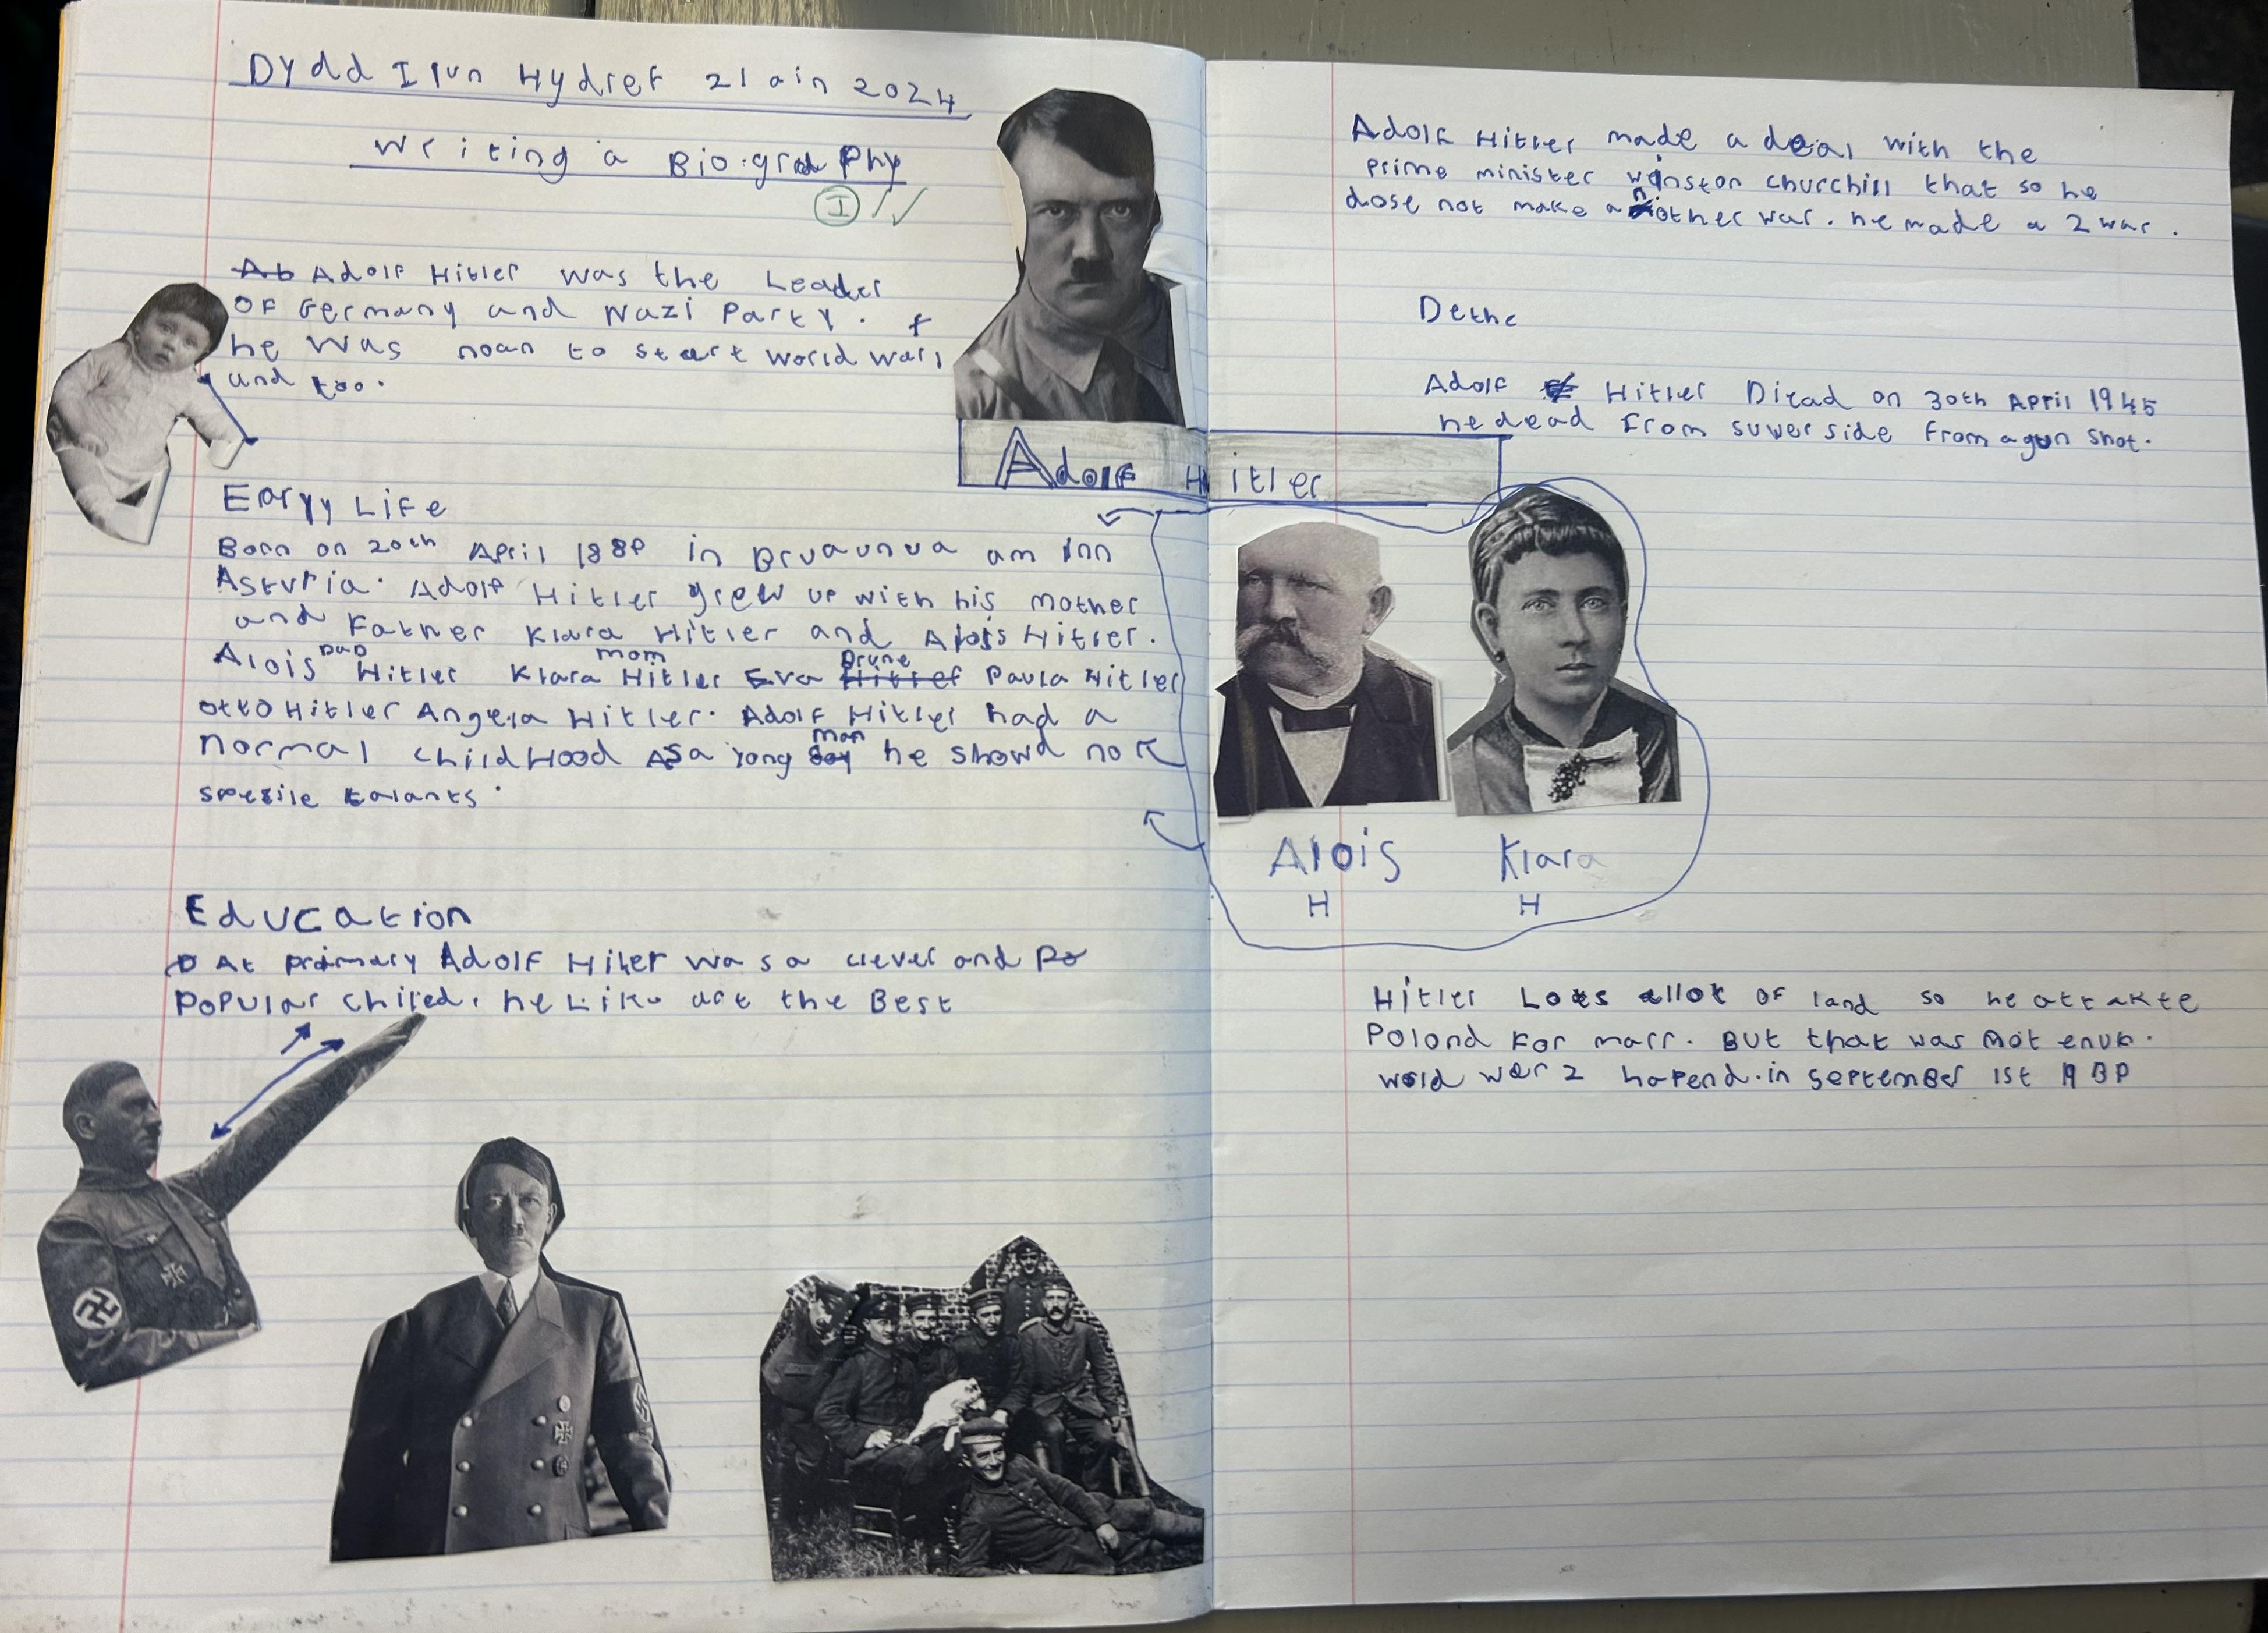 Dydd Llun Hydref 21ain 2024
Writing a Biography
I
Adolf Hitler was the Leader
OF Germany and Nazi Party.
he was noan to start world war 1
and too.
Early Life
Born on 20th April 1889 in Bruaunua am Inn
Asturia. Adolf Hitler grew up with his mother
and Father Klara Hitler and Alois Hitler.
DaD mom Brune
Alois Hitler Klara Hitler Eva Hitler Paula Hitler
otto Hitler Angela Hitler. Adolf Hitler had a
man
normal childHood As a yong boy he showd no
spezile talants.
Education
At primary Adolf Hitler was a clever and Po
Popular chiled. he Like art the Best
Adolf Hitler
Adolf Hitler made a deal with the
prime minister winston churchill that so he
dose not make another war. he made a 2 war.
Dethe
Adolf Hitler Diead on 30th April 1945
he dead from suwer side from a gun shot.
Alois Klara
H H
Hitler Loes allot OF land so he attakte
Poland For marr. But that was not enub.
world war 2 hapend in september 1st 1939